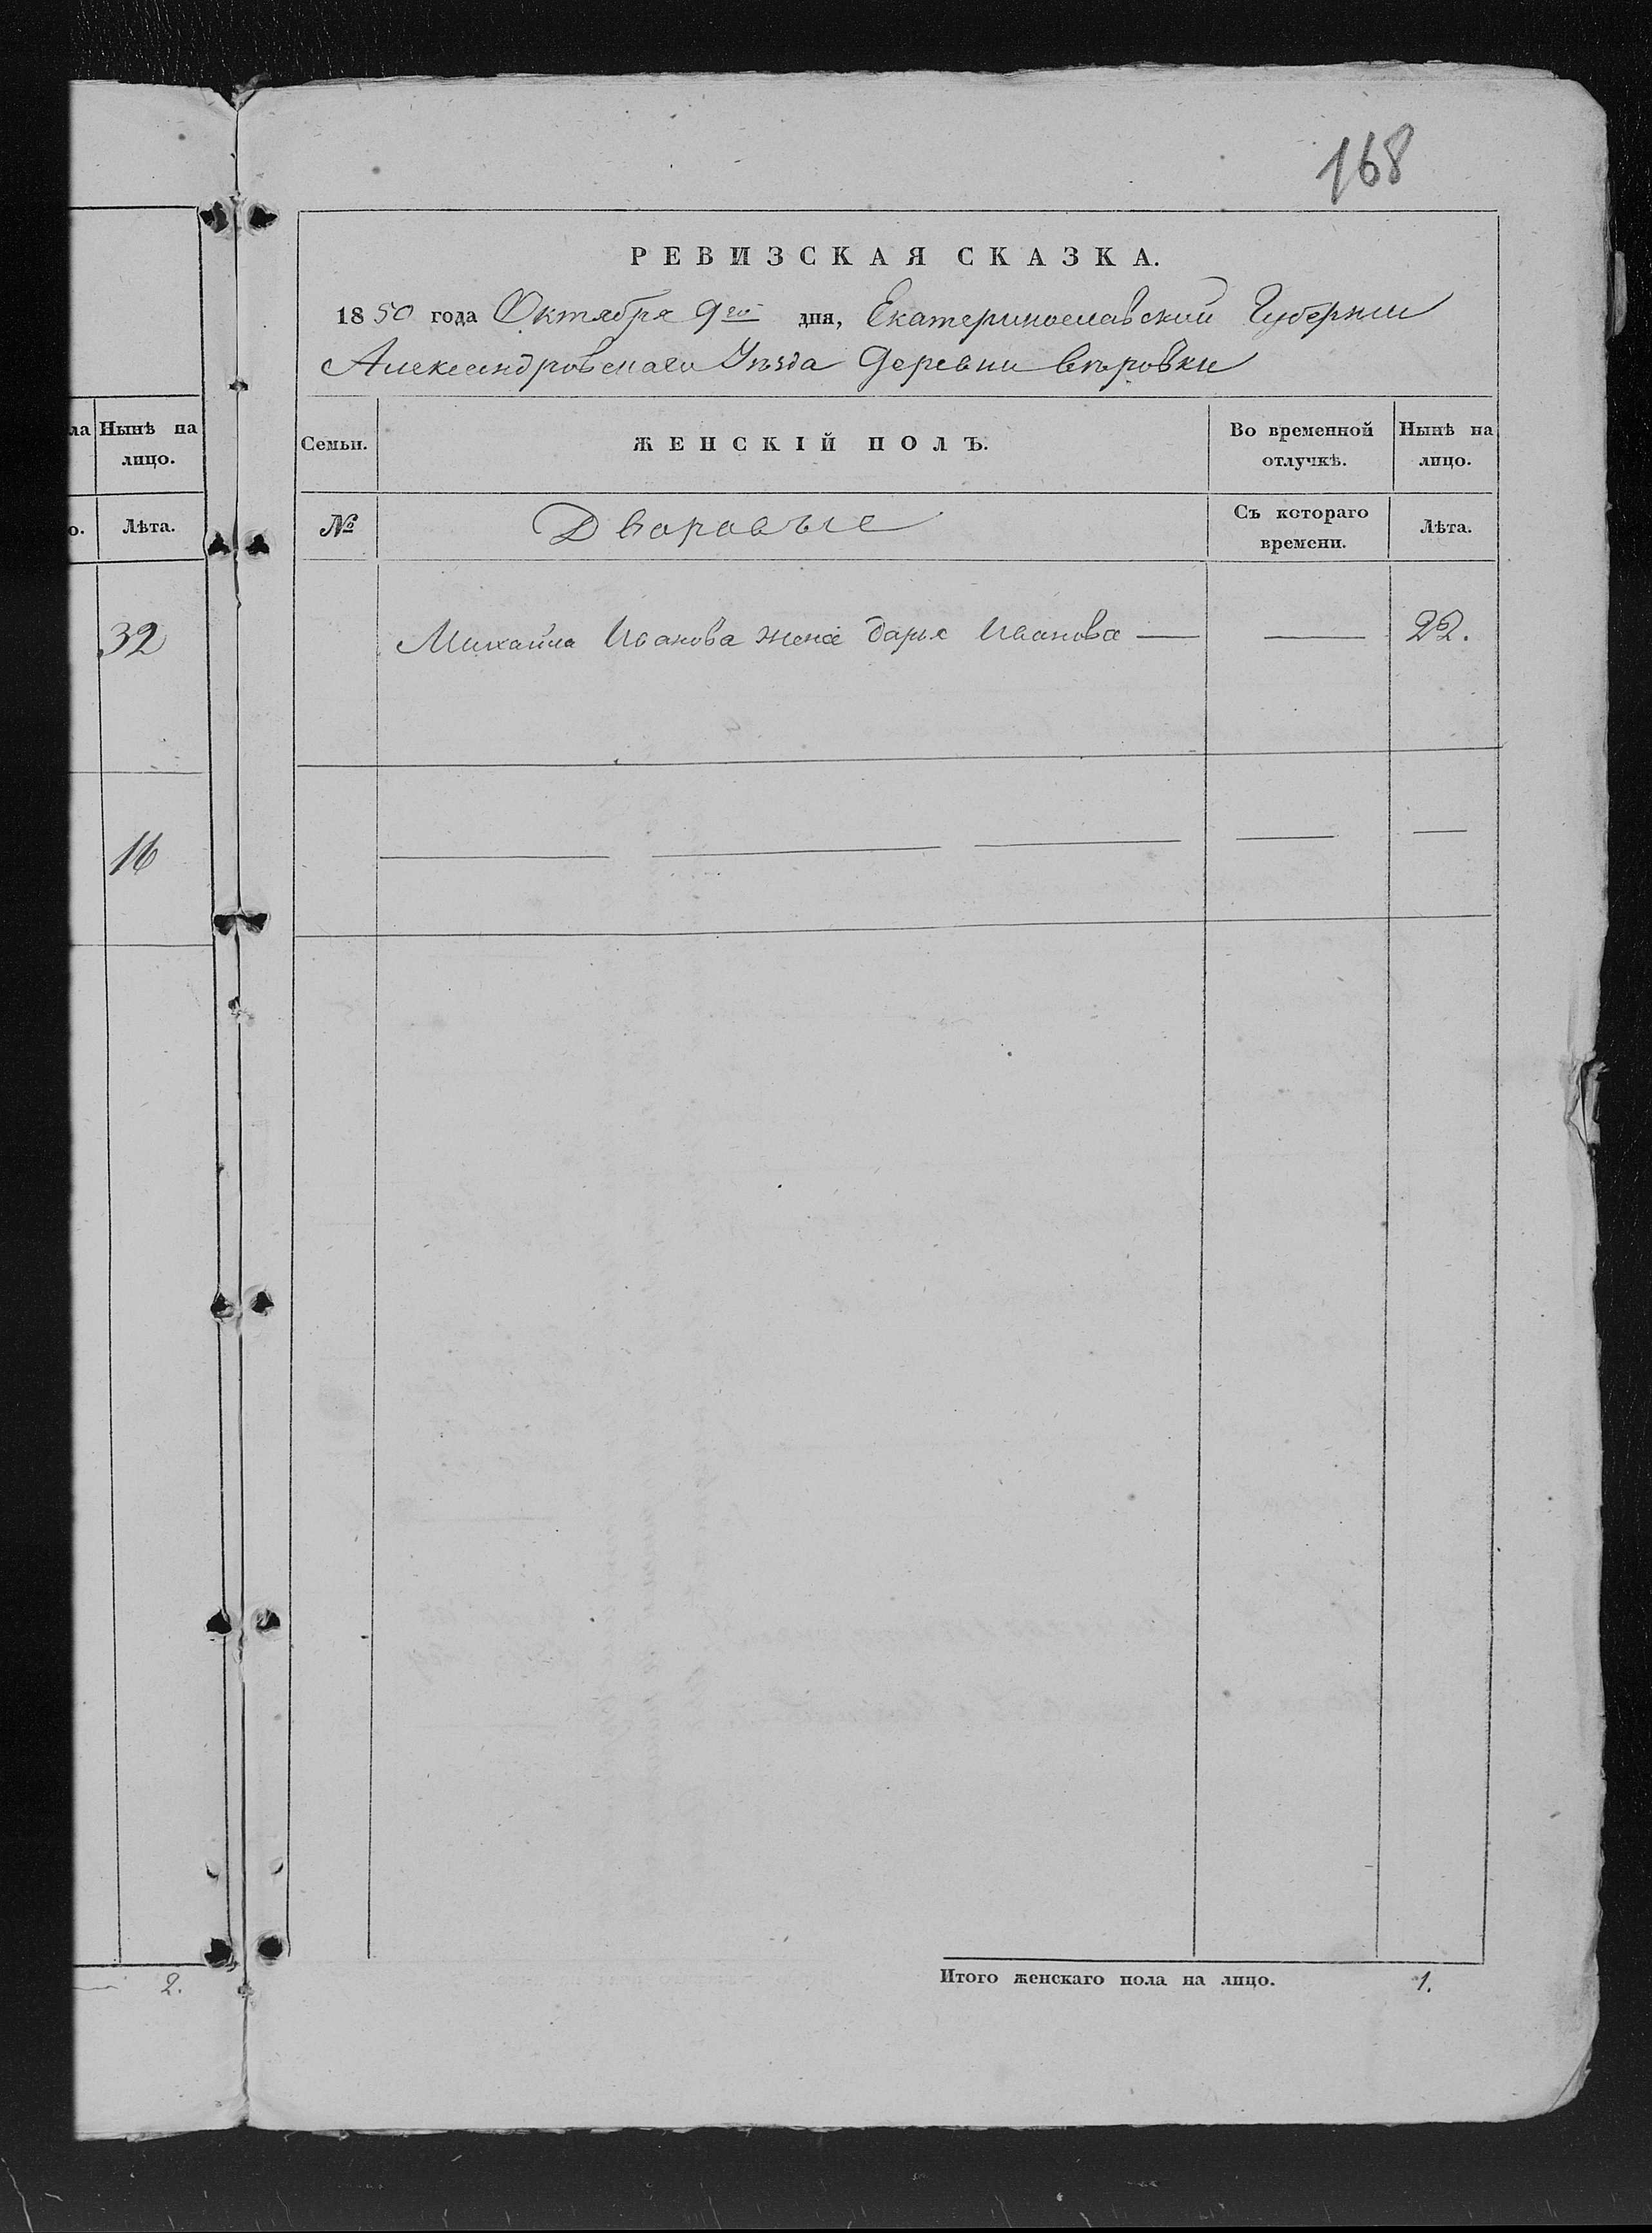 168
РЕВИЗСКАЯ СКАЗКА.
1850 года Октября 9го дня, Екатеринославской Губернии
Александровскаго Уѣзда Деревни Вѣровки
ла Нынѣ на лицо.
о. Лѣта.
32
16
2.
Семьи. ЖЕНСКІЙ ПОЛЪ. Во временной отлучкѣ. Нынѣ на лицо.
№ Дворовые Съ котораго времени. Лѣта.
Михайла Иванова жена Дарья Иванова — — 22.
Итого женскаго пола на лицо. 1.